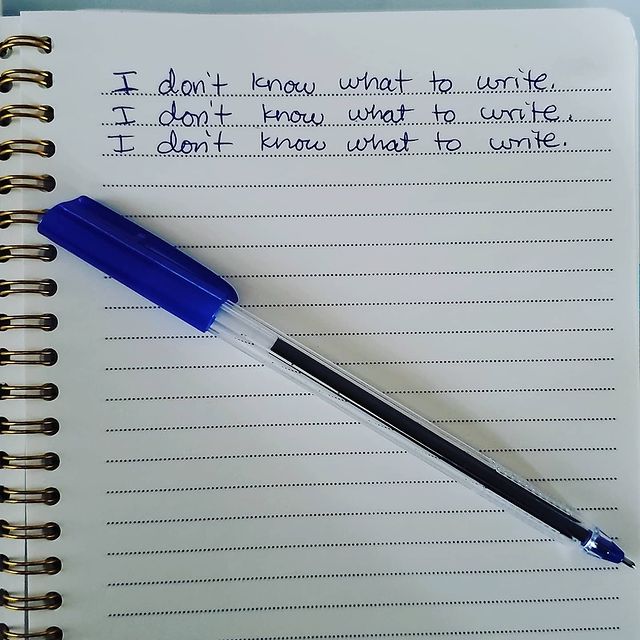 I don't know what to write.
I don't know what to write.
I don't know what to write.